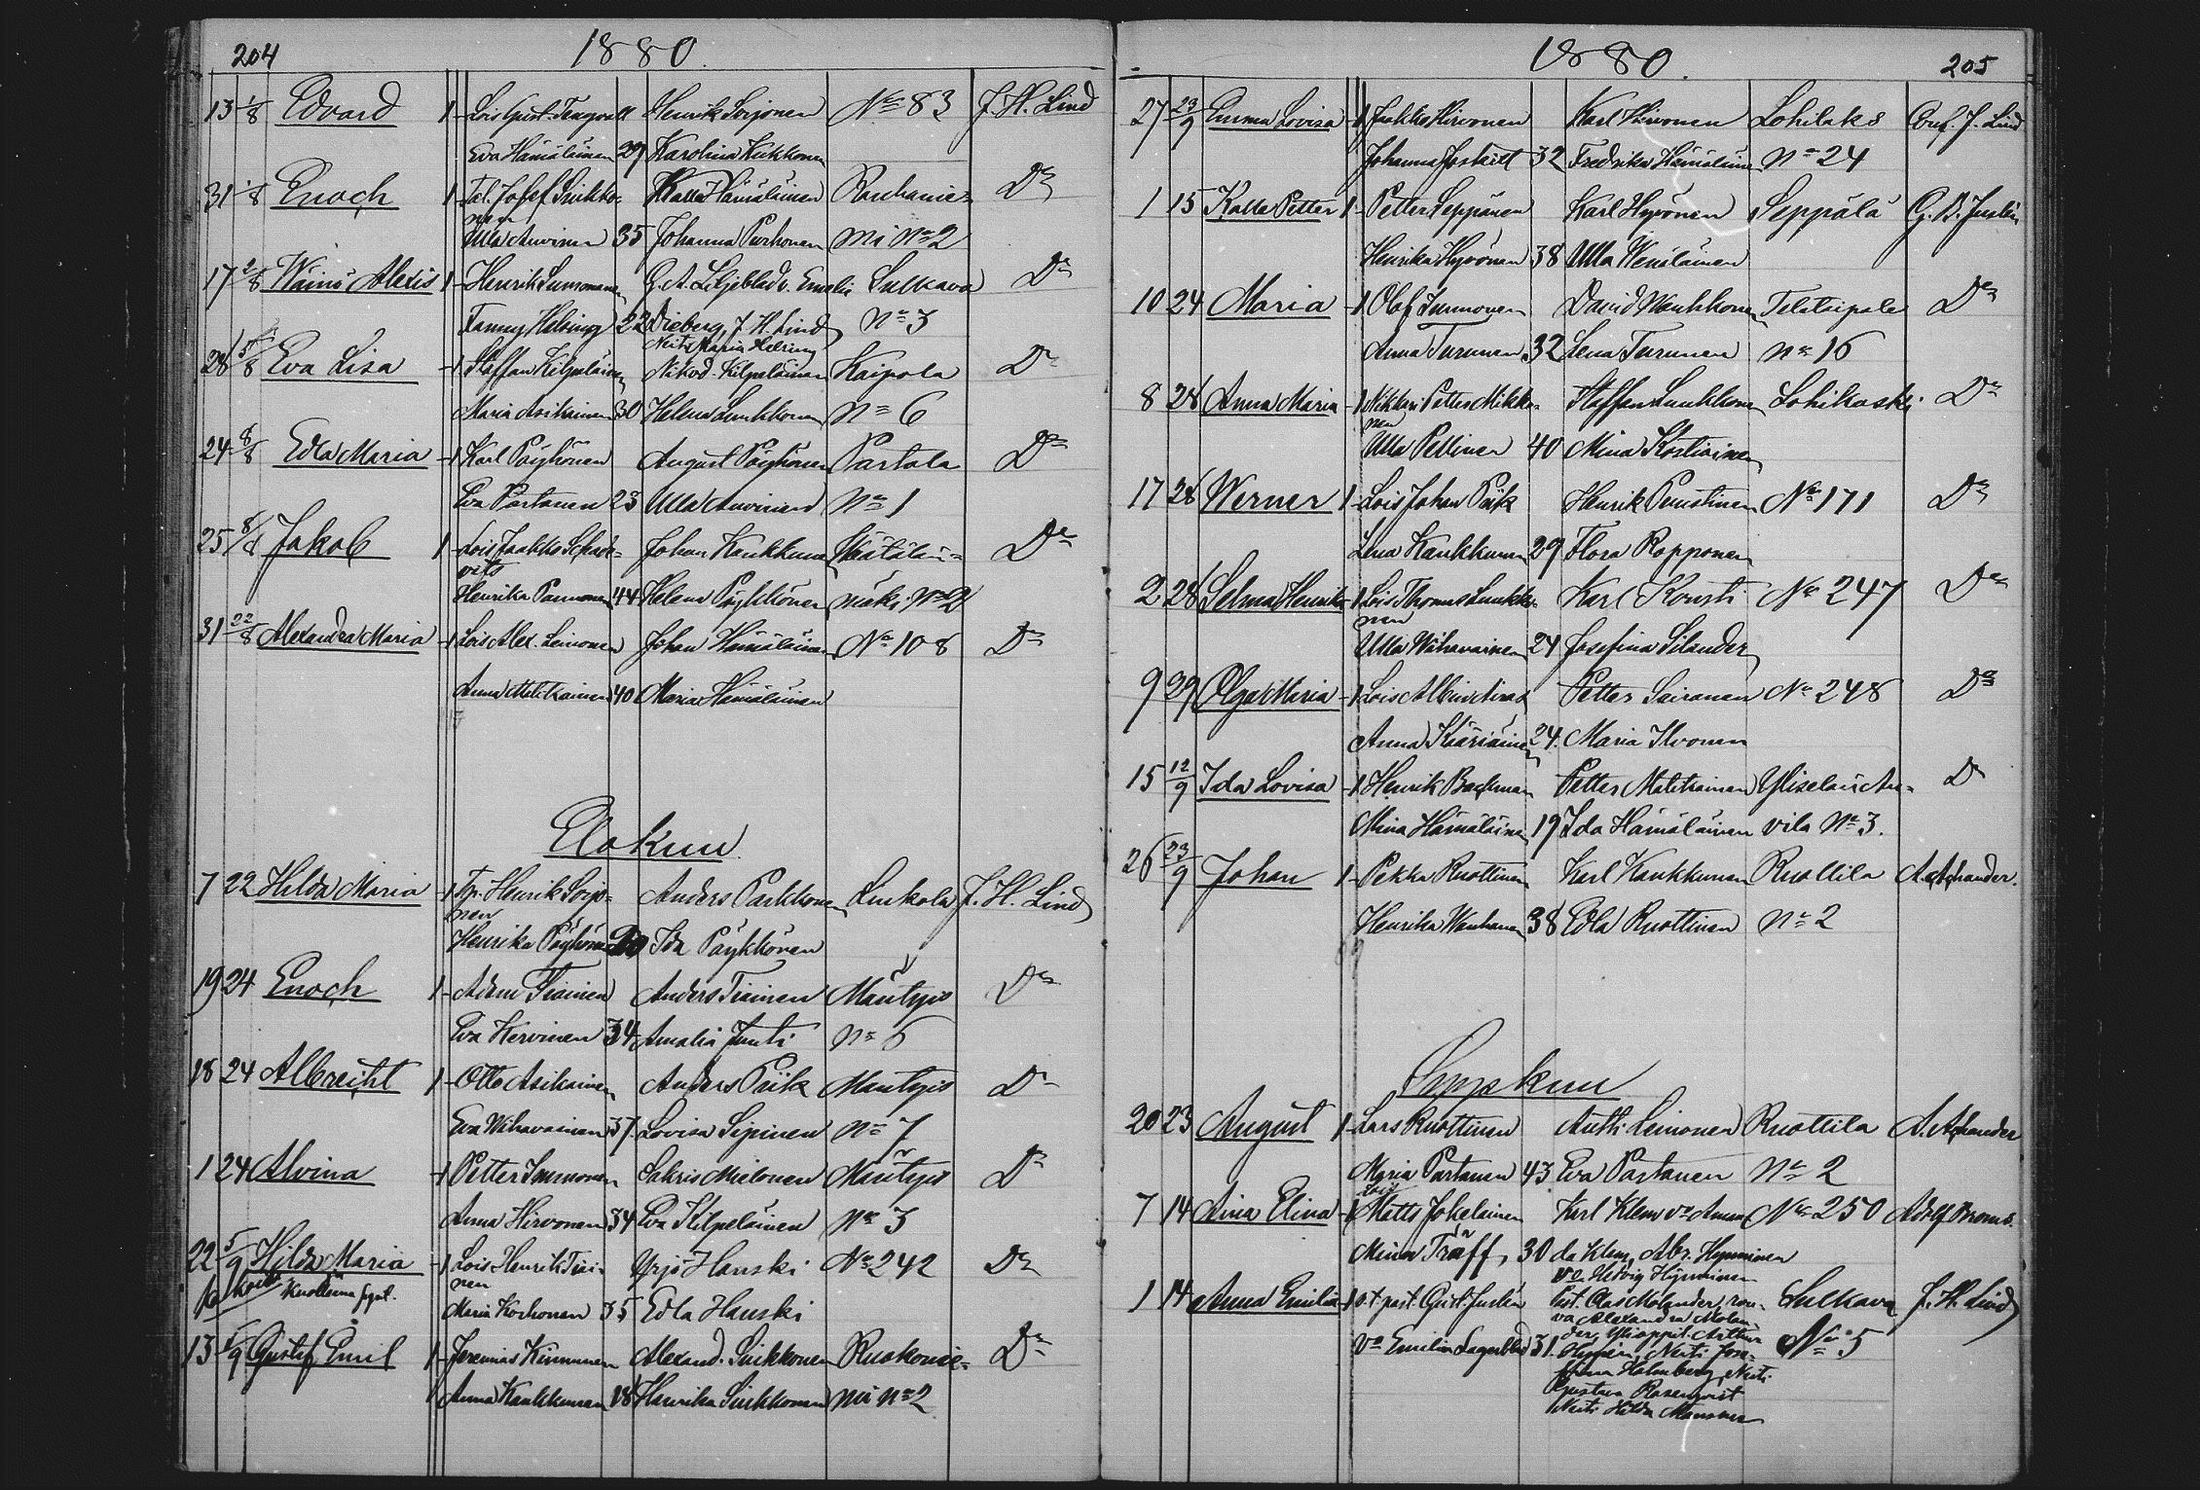 204 1880.
13 1/8 Edvard 1 Lois Gust. Tengvall Henrik Soijonen No 83 J. H. Lind
Eva Hämäläinen 29 Karolina Kukkonen
31 1/8 Enoch 1 Tal. Josef Sinkko- Kalle Hämäläinen Rauhanie- Do
nen
Ulla Auvinen 35 Johanna Purhonen mi No 2
17 2/8 Wäinö Alexis 1 Henrik Immonen G. A. Liljeblad v. Emelie Sulkava Do
Fanny Helsing 22 Dieberg, J. H. Lind No 3
Neiti Maria Helsing
28 5/8 Eva Lisa 1 Staffan Kilpeläinen Nikod. Kilpeläinen Kaipola Do
Maria Asikainen 30 Helena Luukkonen No 6
24 8/8 Edla Maria 1 Karl Pöyhönen August Pöyhönen Partala Do
Eva Partanen 23 Ulla Auvinen No 1
25 8/8 Jakob 1 Lois Jaakko
Johan Kaukkunen Do
Henrika Pannonen 44 Helena Pöykhönen mäki No 2
31 22/8 Alexandra Maria 1 Lois Alex. Leinonen Johan Hämäläinen No 108 Do
Anna Malkainen 40 Maria Hämäläinen
Elokuu
7 22 Hilda Maria 1 Tp. Henrik Soijo- Anders Parkkonen Linkola J. H. Lind
nen
Henrika Pöyhönen Ida Pöykhönen
19 24 Enoch 1 Adam Tiainen Anders Tiainen Mäntyis Do
Eva Kervinen 34 Amalia Junti No 6
18 24 Albreiht 1 Otto Asikainen Anders Piik Mäntyis Do
Eva Wihavainen 37 Lovisa Sipinen No 7
1 24 Alvina 1 Petter Immonen Sakris Mielonen Mäntyis Do
Anna Hirvonen 34 Eva Kilpeläinen No 3
22 5/9 Hilda Maria 1 Lois Henrik Tiai- Yrjö Hanski No 242 Do
nen
Maria Korhonen 35 Edla Hanski
13 5/9 Gustaf Emil 1 Jeremias Kinnunen Alexand. Sinkkonen Ruokonie- Do
Anna Kaukkunen 18 Henrika Sinkkonen mi No 2
1880. 205
27 29/9 Emma Lovisa 1 Jaakko Hirvonen Karl Hirvonen Lohilaks Conf. J. Lind
Johanna 32 Fredrika Hämäläinen No 24
1 15 Kalle Petter 1 Petter Seppänen Karl Hyvönen Seppälä G. B. Juslin
Henrika Hyvönen 38 Ulla Wenäläinen
10 24 Maria 1 Olof Immonen David Wankkonen Telataipale Do
Anna Turunen 32 Lena Turunen No 16
8 28 Anna Maria 1 Nikkari Petter Mikko- Staffan Luukkonen Lohikoski Do
nen
Ulla Pellinen 40 Mina Kostiainen
17 28 Werner 1 Lois Johan Piik Henrik Penttinen No 171 Do
Lena Kaukkunen 29 Flora Ropponen
2 28 Selma Henrika 1 Lois Thomas Luukko- Karl Konsti No 247 Do
nen
Ulla Wihavainen 24 Josefina Silander
9 29 Olga Maria 1 Lois Albin Petter Sairanen No 248 Do
Anna Kääriäinen 24. Maria Ilvonen
15 12/9 Ida Lovisa 1 Henrik Backman Petter Malkainen Yliselän Au- Do
Mina Hämäläinen 19 Ida Hämäläinen vila No 3.
26 23/9 Johan 1 Pekka Ruottinen Karl Kaukkunen Ruottila A. Achander.
Henrika Wanhanen 38 Edla Ruottinen No 2
Syyskuu
20 23 August 1 Lars Ruottinen Antti Leinonen Ruottila A. Achander
Maria Partanen 43 Eva Partanen No 2
7 14 Aina Elina 1 Lois Matts Jokelainen Karl Klem vo Aman- No 250 Adolf Broms.
Miina Träff, 30 da Klem, Abr. Hynninen
vo Hedvig Hynninen
1 14 Anna Emilia 1 v.t. past. Gust. Juslin Past. Clas Molander, rou- Sulkava J. H. Lind
va Alexandra Molan-
der, Yliappil. Arthur
vo Emilia Lagerblad 31 Neiti No 5
Holmberg, Neiti
Gustava Rosenqvist
Neiti Hilda